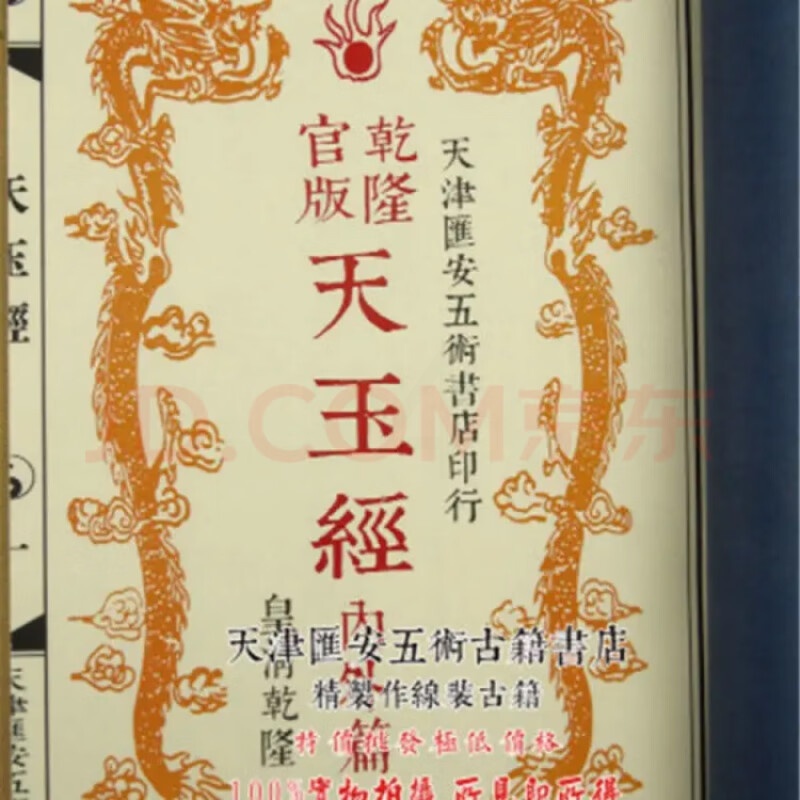 天津匯安五術書店印行
乾隆
官版
天玉經
內外篇
皇清乾隆
天玉經
一
天津匯安五
JD.COM京东
天津匯安五術古籍書店
精製作線裝古籍
特價批發極低價格
100%實物拍攝 所見即所得